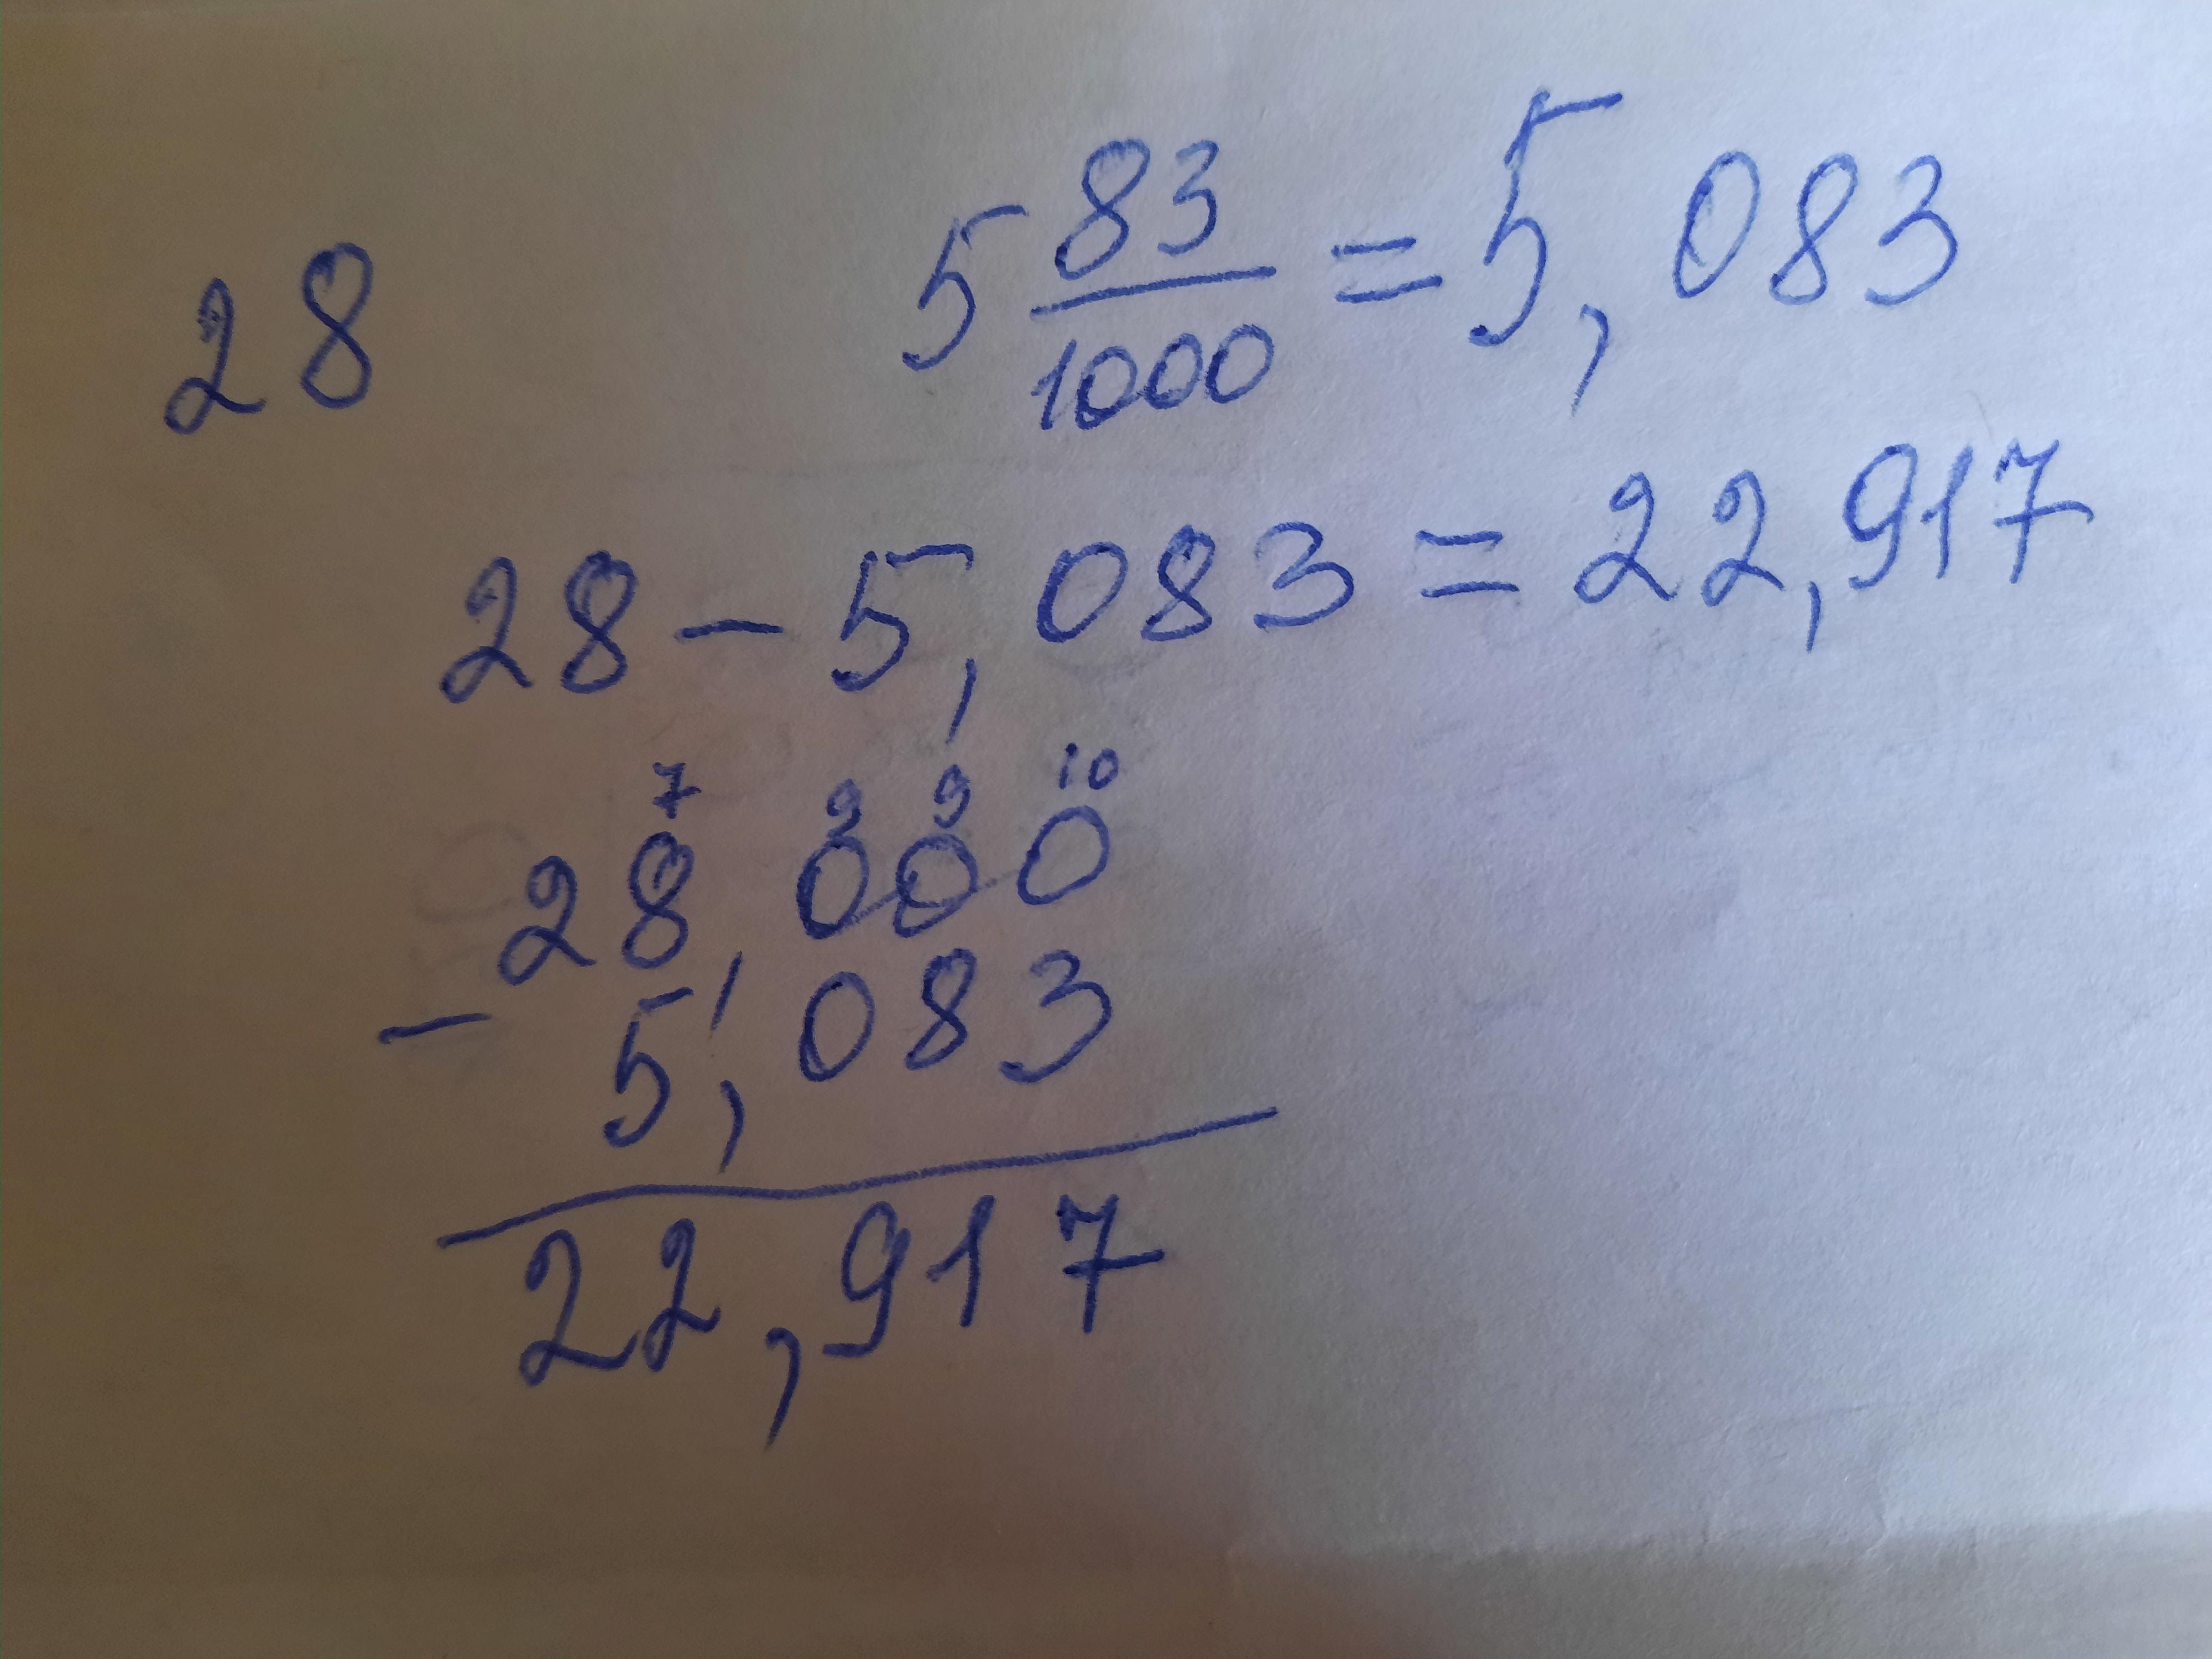 28
5 83/1000 = 5,083
28 - 5,083 = 22,917
7 9 9 10
28,000
- 5,083
22,917